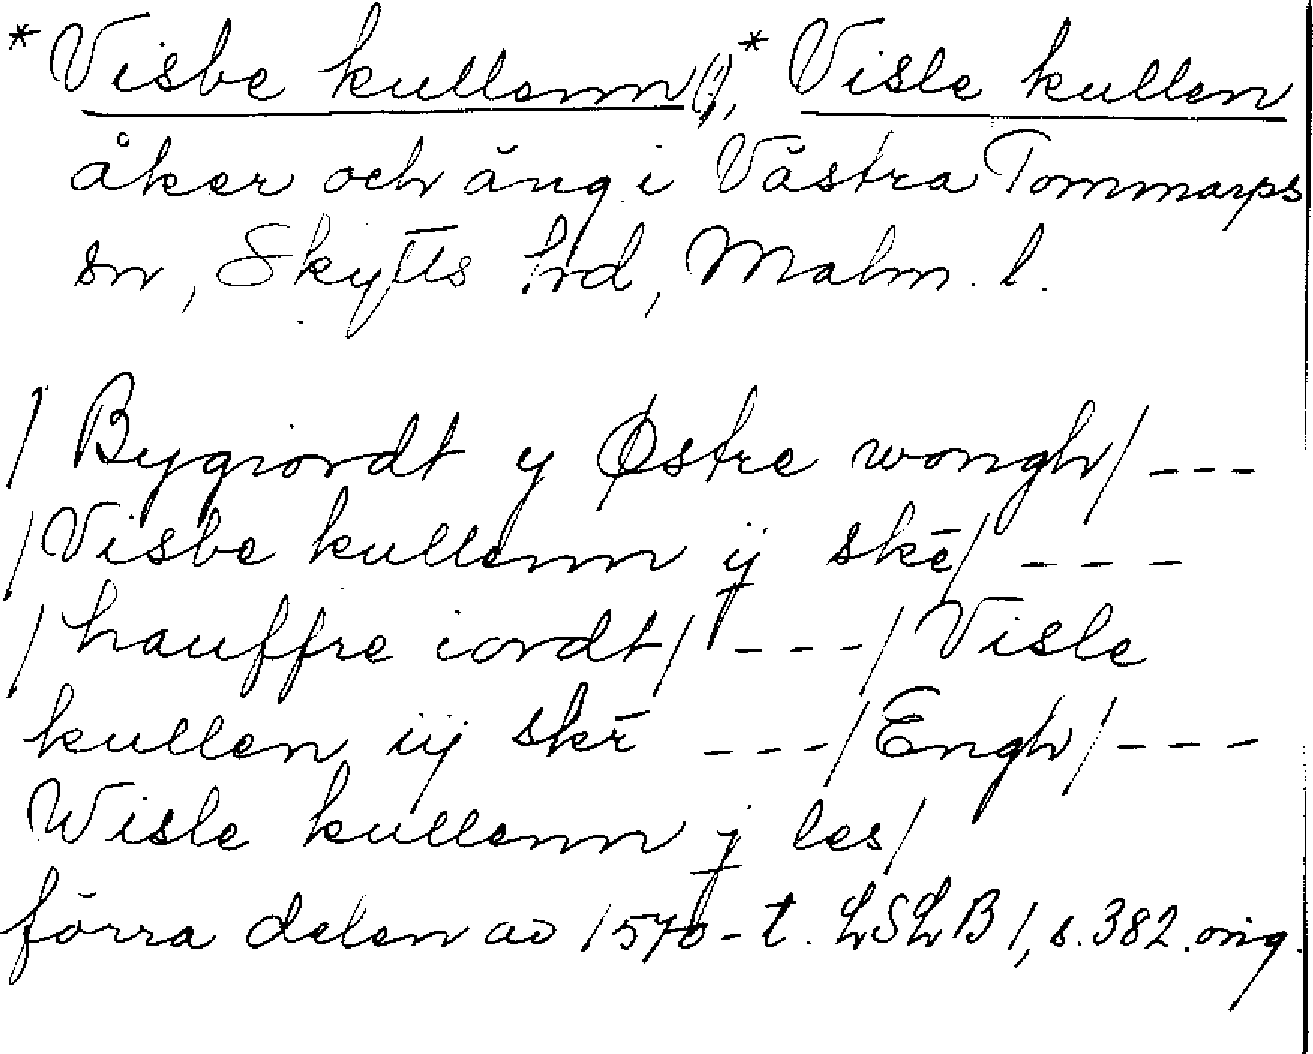 *Visbe kullenn(?), *Visle kullen
åker och äng i Västra Tommarps
sn, Skytts hd, Malm. l.
/ Bygiordt y Østre wongh/ ---
/Visbe kullenn ij skē/ ---
/hauffre iordt/ ---/Visle
kullen iij skē ---/Engh/---
Wisle kullenn j les/
förra delen av 1570-t. LSLB 1, s. 382. orig.